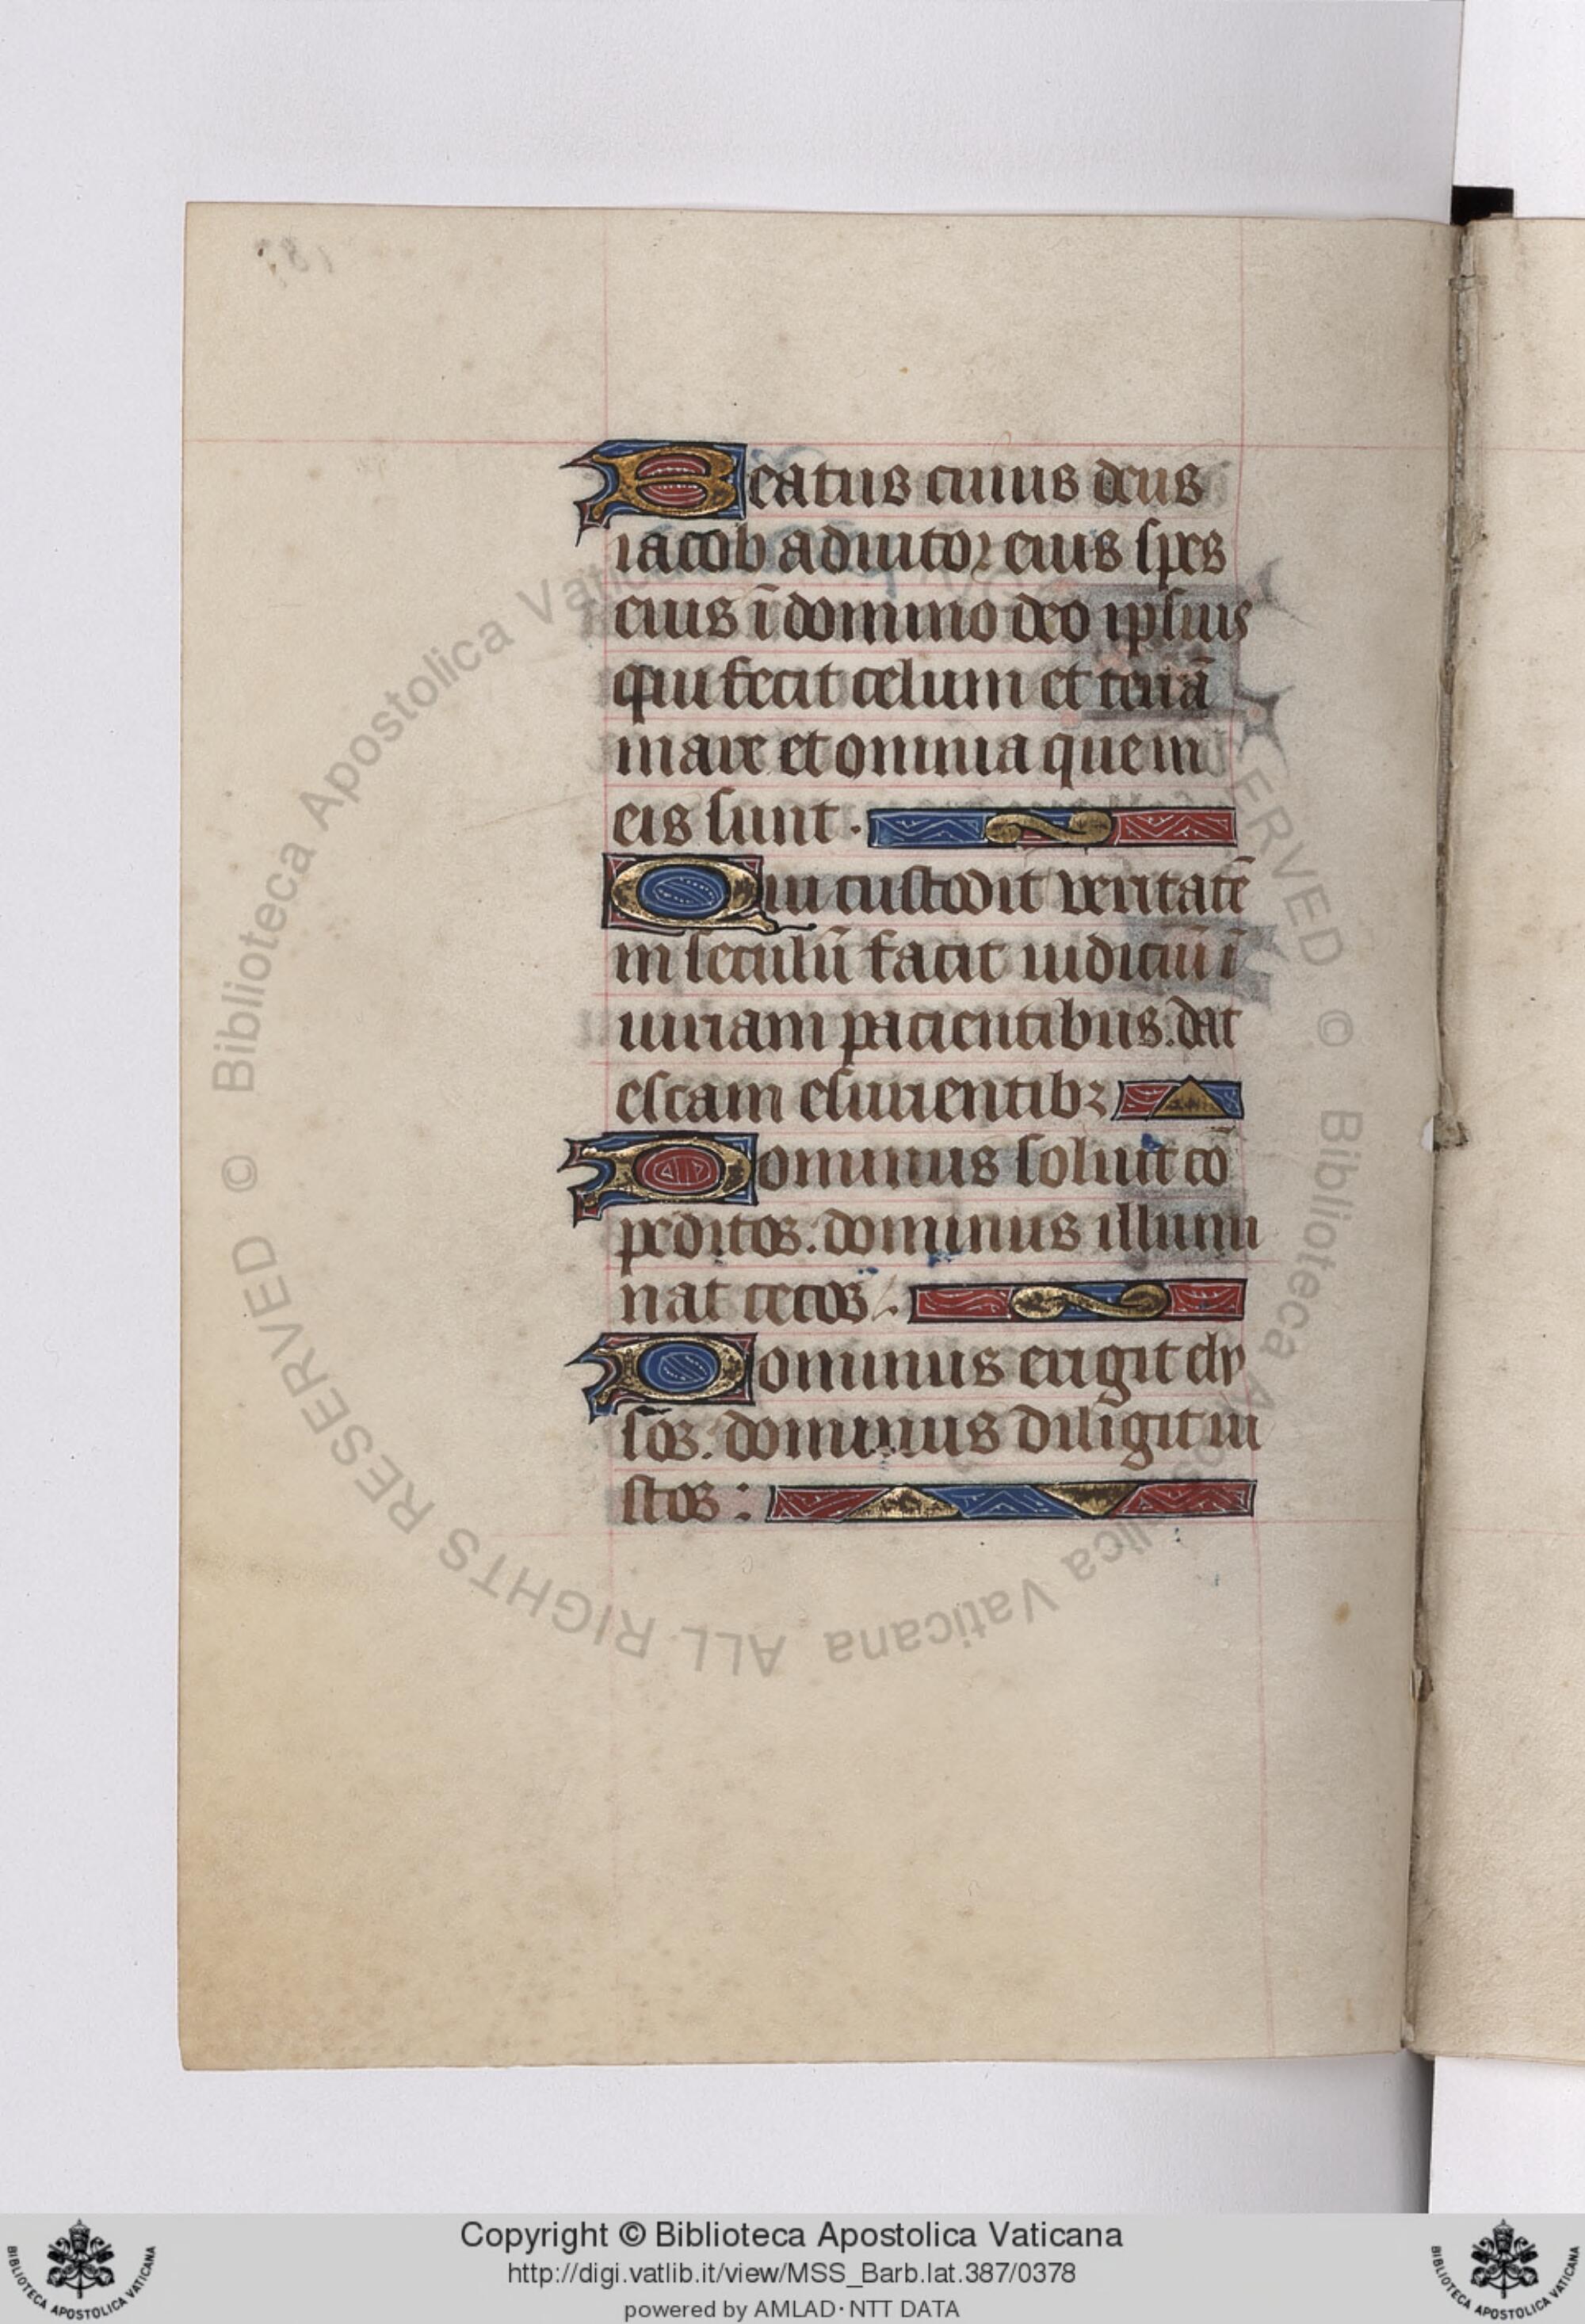 Beatus cuius deus
iacob adiutor eius spes
eius ī domino deo ipsius
qui fecit celum et terrā
mare et omnia que in
eis sunt .
Qui custodit veritatē
in seculū facit iudiciū ī
iuriam pacientibus. dat
escam esurientibꝫ
Dominus soluit cō
peditos: dominus illumi
nat cecos .
Dominus erigit ely
sos: dominus diligit iu
stos :
© Biblioteca Apostolica Vaticana ALL RIGHTS RESERVED © Biblioteca Apostolica Vaticana ALL RIGHTS RESERVED
Copyright © Biblioteca Apostolica Vaticana
http://digi.vatlib.it/view/MSS_Barb.lat.387/0378
powered by AMLAD·NTT DATA
BIBLIOTECA APOSTOLICA VATICANA
BIBLIOTECA APOSTOLICA VATICANA